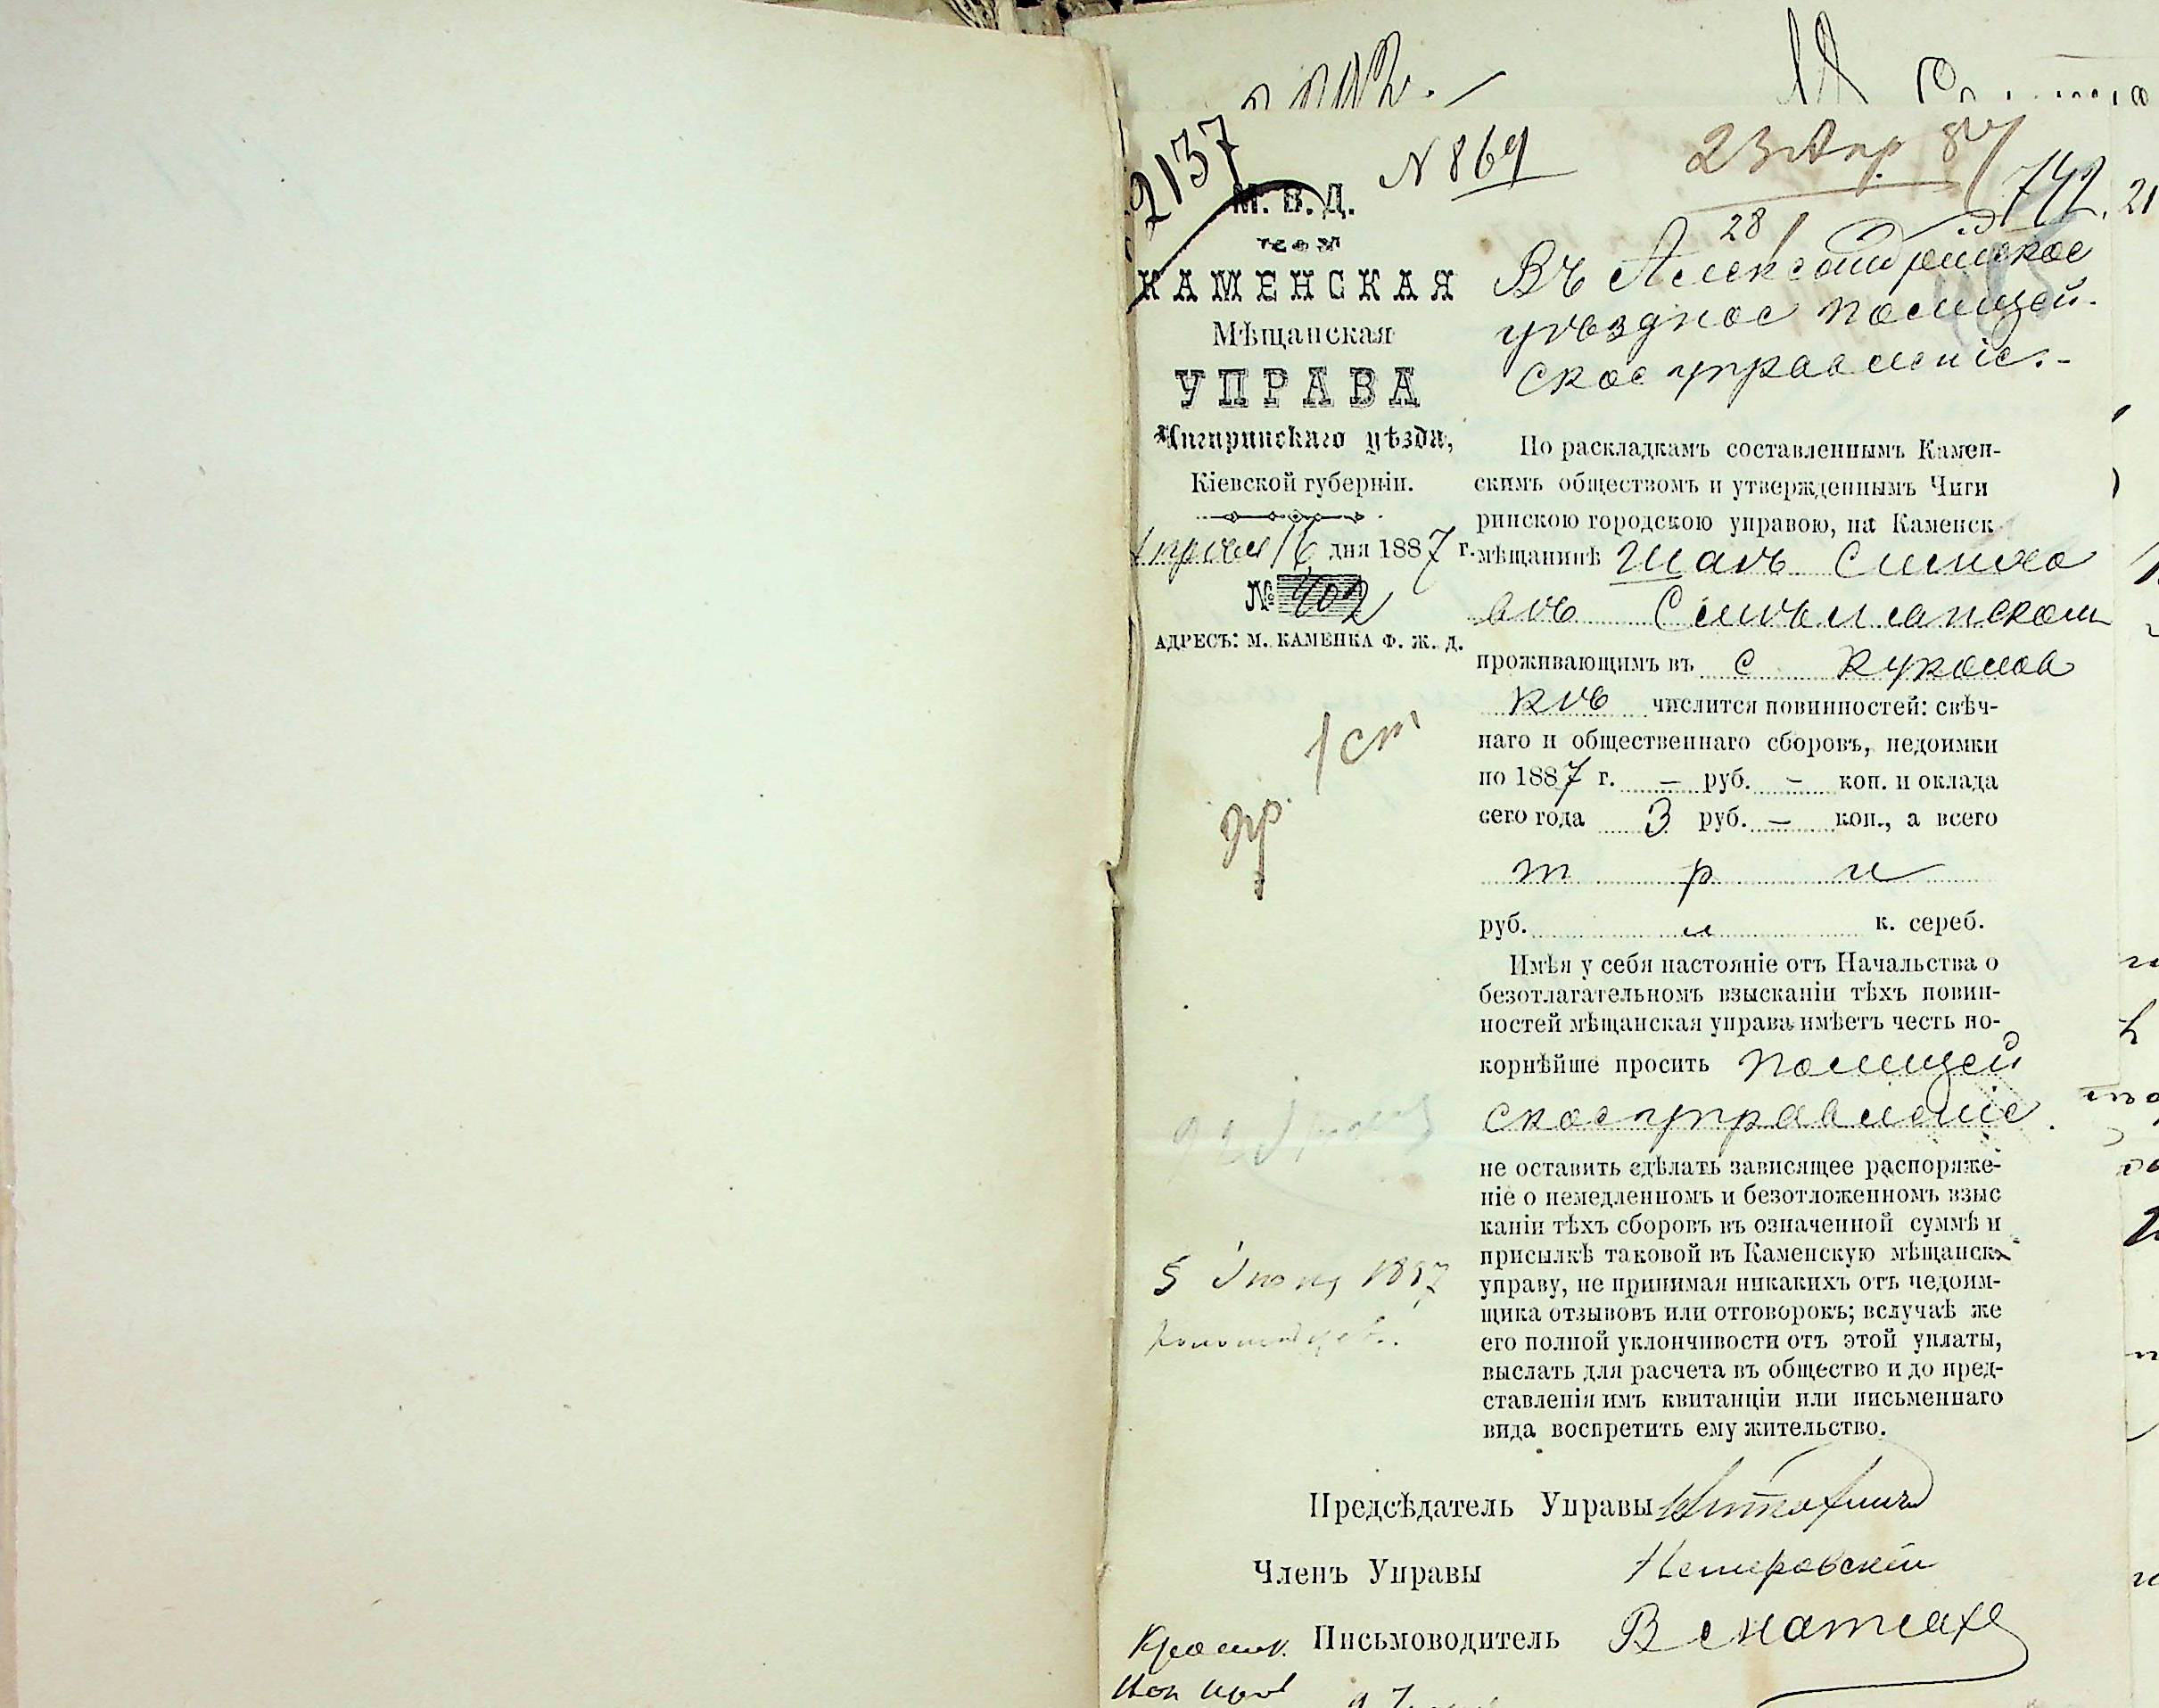 2137
N 869
23 Апр 87
742. 21
28
М. В. Д.
КАМЕНСКАЯ
Мѣщанская
УПРАВА
Чигиринскаго уѣзда,
Кіевской губерніи.
Апреля 16 дня 1887 г.
№ 402
АДРЕСЪ: М. КАМЕНКА Ф. Ж. Д.
1 ст
Въ Александрійское
уѣздное полицей-
ское управленіе.-
По раскладкамъ составленнымъ Камен-
скимъ обществомъ и утвержденнымъ Чиги
ринскою городскою управою, на Каменск
мѣщанинѣ
проживающимъ въ с Куколов
кѣ числится повинностей: свѣч-
наго и общественнаго сборовъ, недоимки
по 1887 г. — руб. — коп. и оклада
сего года 3 руб. — коп., а всего
т р и
руб. к. сереб.
Имѣя у себя настояніе отъ Начальства о
безотлагательномъ взысканіи тѣхъ повин-
ностей мѣщанская управа имѣетъ честь по-
корнѣйше просить полицей
ское управленіе.
не оставить сдѣлать зависящее распоряже-
ніе о немедленномъ и безотложенномъ взыс
каніи тѣхъ сборовъ въ означенной суммѣ и
присылкѣ таковой въ Каменскую мѣщанск
управу, не принимая никакихъ отъ недоим-
щика отзывовъ или отговорокъ; вслучаѣ же
его полной уклончивости отъ этой уплаты,
выслать для расчета въ общество и до пред-
ставленія имъ квитанціи или письменнаго
вида воспретить ему жительство.
5 Іюня 1887
Предсѣдатель Управы
Членъ Управы
Письмоводитель